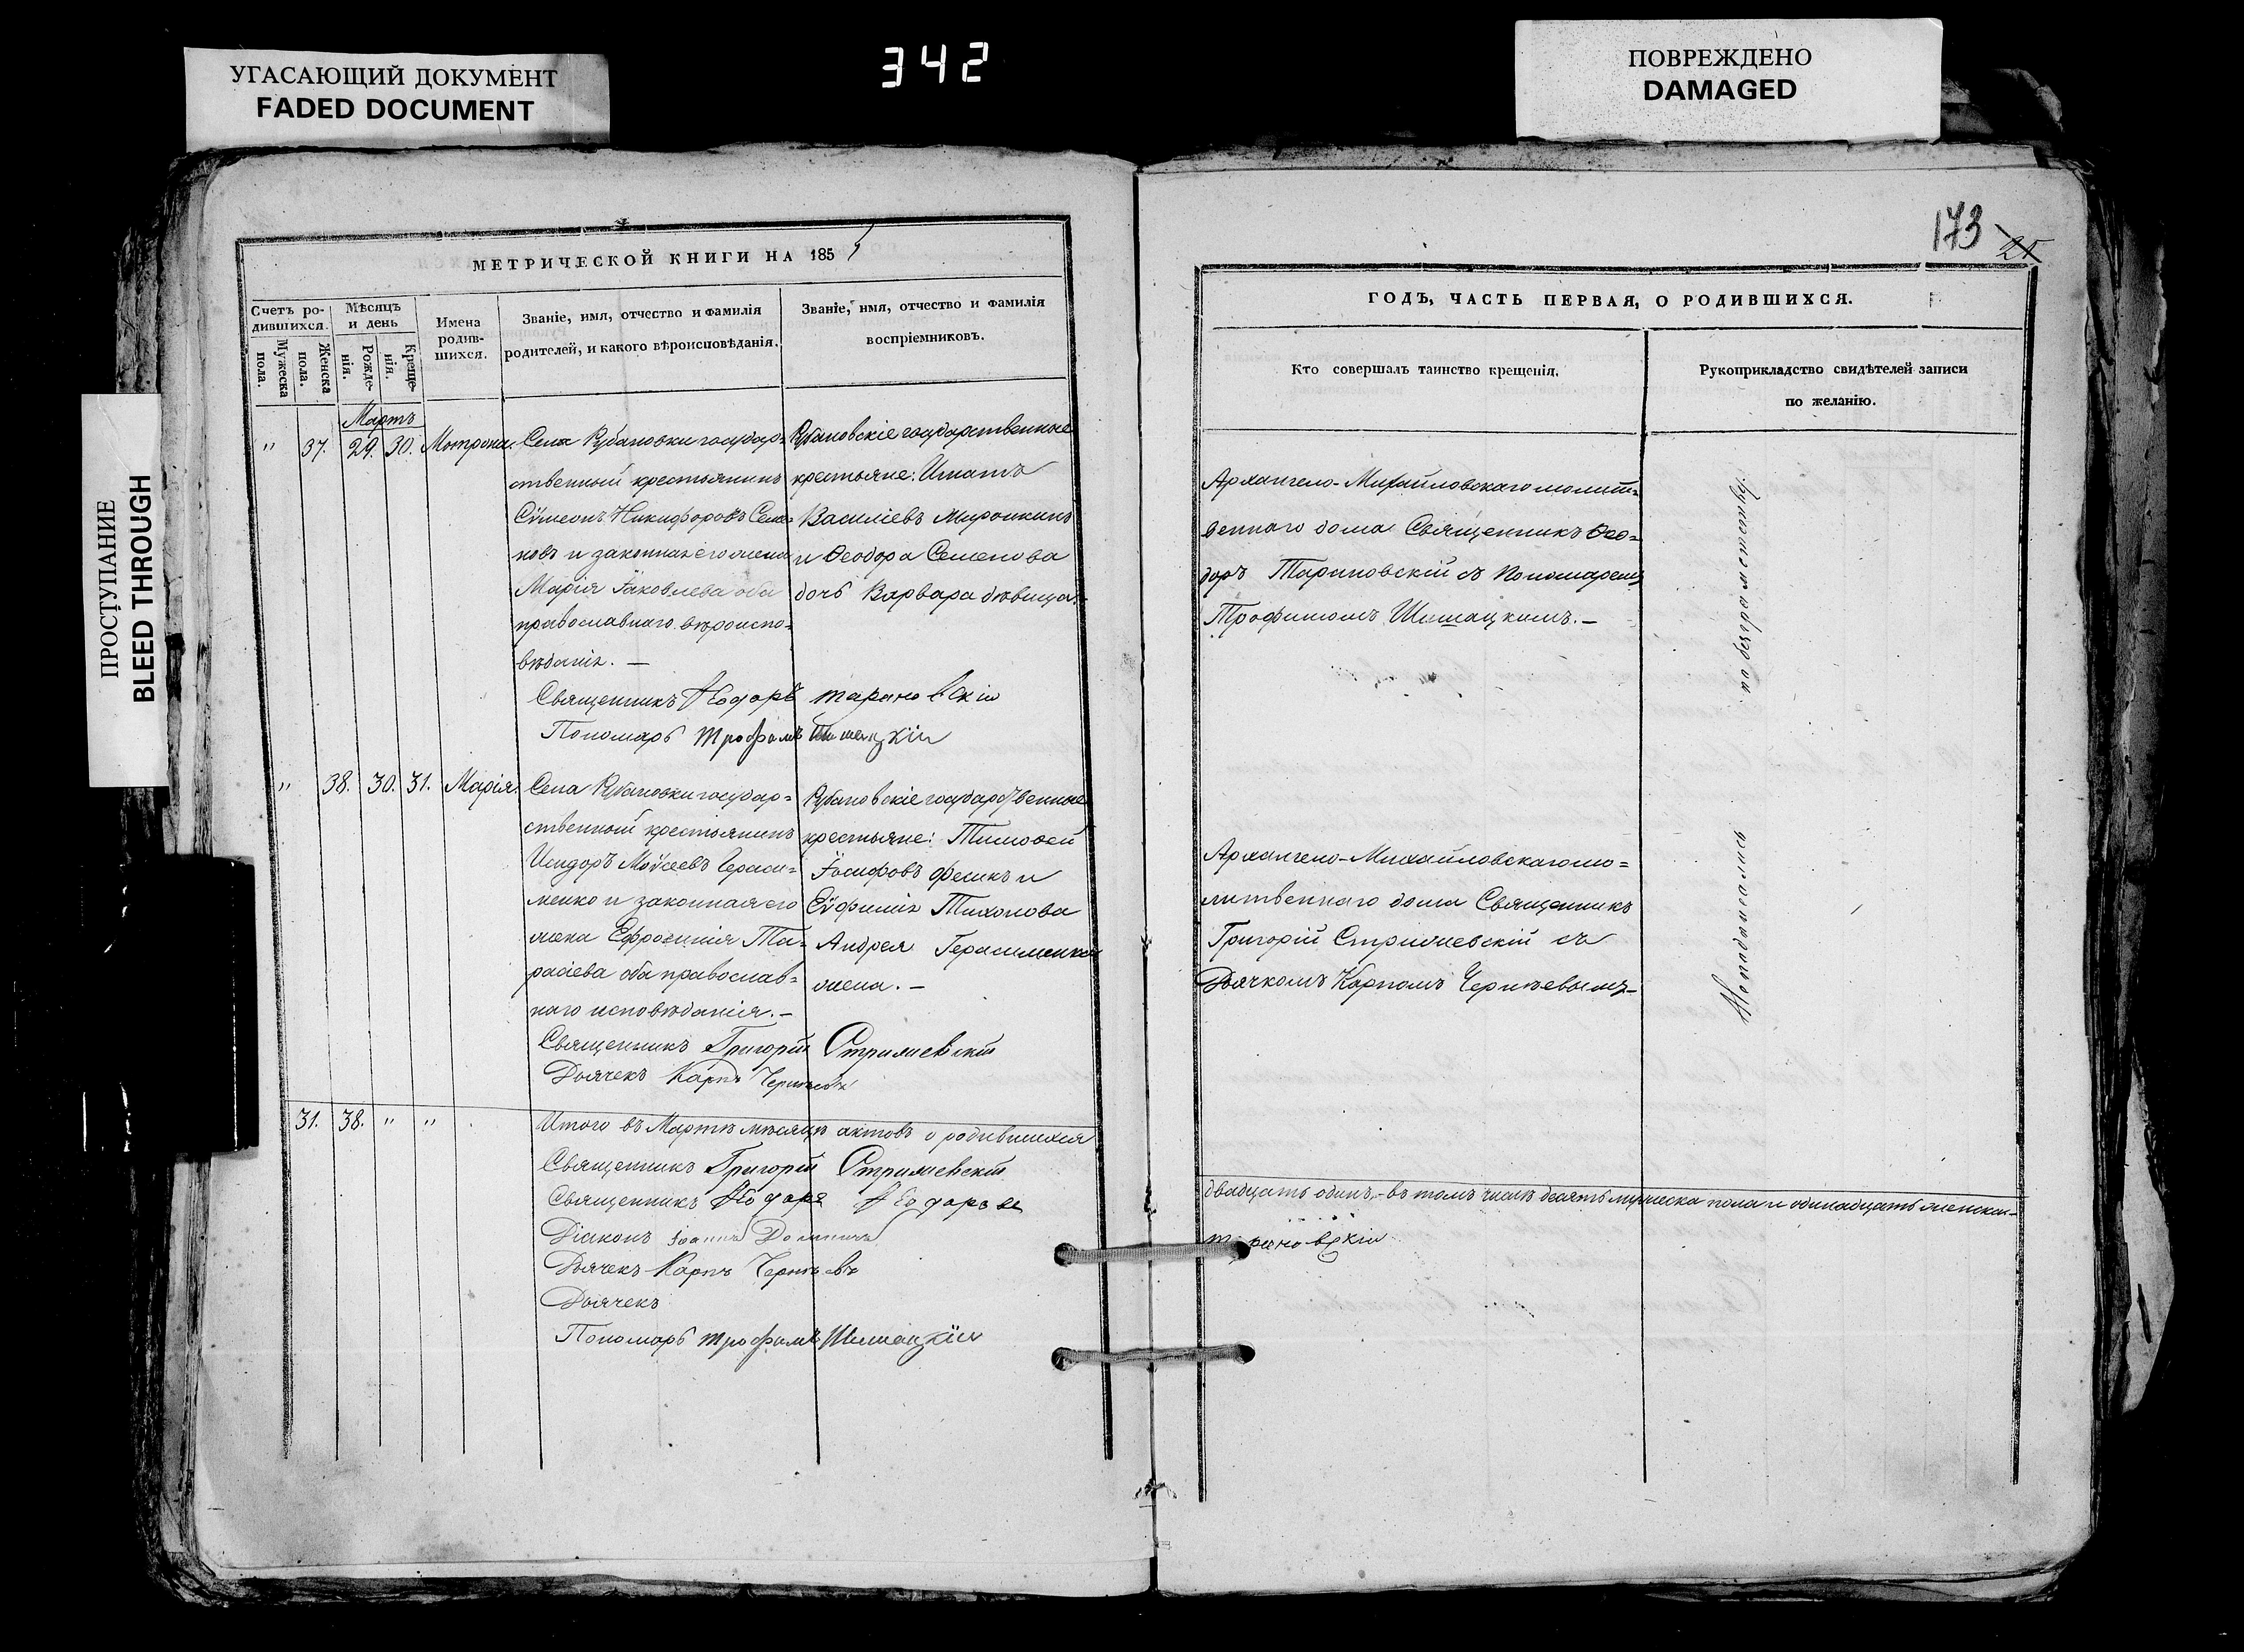 УГАСАЮЩИЙ ДОКУМЕНТ
FADED DOCUMENT
342
ПОВРЕЖДЕНО
DAMAGED
ПРОСТУПАНИЕ
BLEED THROUGH
МЕТРИЧЕСКОЙ КНИГИ НА 185
Счетъ ро-
дившихся.
Мужеска
пола.
Женска
пола.
Мѣсяцъ
и день
Рожде-
нія.
Креще-
нія.
Имена
родив-
шихся.
Званіе, имя, отчество и фамилія
родителей, и какого вѣроисповѣданія.
Званіе, имя, отчество и фамилія
воспріемниковъ.
Мартъ
" 37. 29. 30. Мотрона.
Села Рубановки государ=
ственный крестьянинъ
Сѵмеонъ Никифоровъ
и законная его жена
Марія Іаковлева оба
православнаго вѣроиспо=
вѣданія. —
Рубановскіе государственные
крестьяне: Игнатъ
Василіевъ Мирошкинъ
и Ѳеодора Семенова
дочь Варвара дѣвица.
Священникъ Ѳеодоръ Тарановскій
Пономарь Трофимъ Шишацкій
" 38. 30. 31. Марія.
Села Рубановки государ=
ственный крестьянинъ
Исидоръ Моѵсеевъ Гераси=
менко и законная его
жена Ефросинія Та=
расіева оба православ=
наго исповѣданія. —
Рубановскіе государственные
крестьяне: Тимоѳей
Іосифовъ и
Еѵфимія Тихонова
Андрея Герасименка
жена. —
Священникъ Григорій Стрижевскій
Дьячекъ Карпъ Чернѣевъ
31. 38. " "
Итого въ Мартѣ мѣсяцѣ актовъ о родившихся
Священникъ Григорій Стрижевскій
Священникъ Ѳеодоръ
Діаконъ Іоаннъ
Дьячекъ Карпъ Чернѣевъ
Дьячекъ
Пономарь Трофимъ Шишацкій
173
21
ГОДЪ, ЧАСТЬ ПЕРВАЯ, О РОДИВШИХСЯ.
Кто совершалъ таинство крещенія.
Рукоприкладство свидѣтелей записи
по желанію.
Архангело-Михайловскаго молит=
веннаго дома Священникъ Ѳео=
доръ Тарановскій съ Пономаремъ
Трофимомъ Шишацкимъ. —
по безграмотству.
Архангело-Михайловскаго мо=
литвеннаго дома Священникъ
Григорій Стрижевскій съ
Дьячкомъ Карпомъ Чернѣевымъ —
Не подписались
двадцать одинъ, — въ томъ числѣ десять мужеска пола и одинадцать женска —
Тарановскій